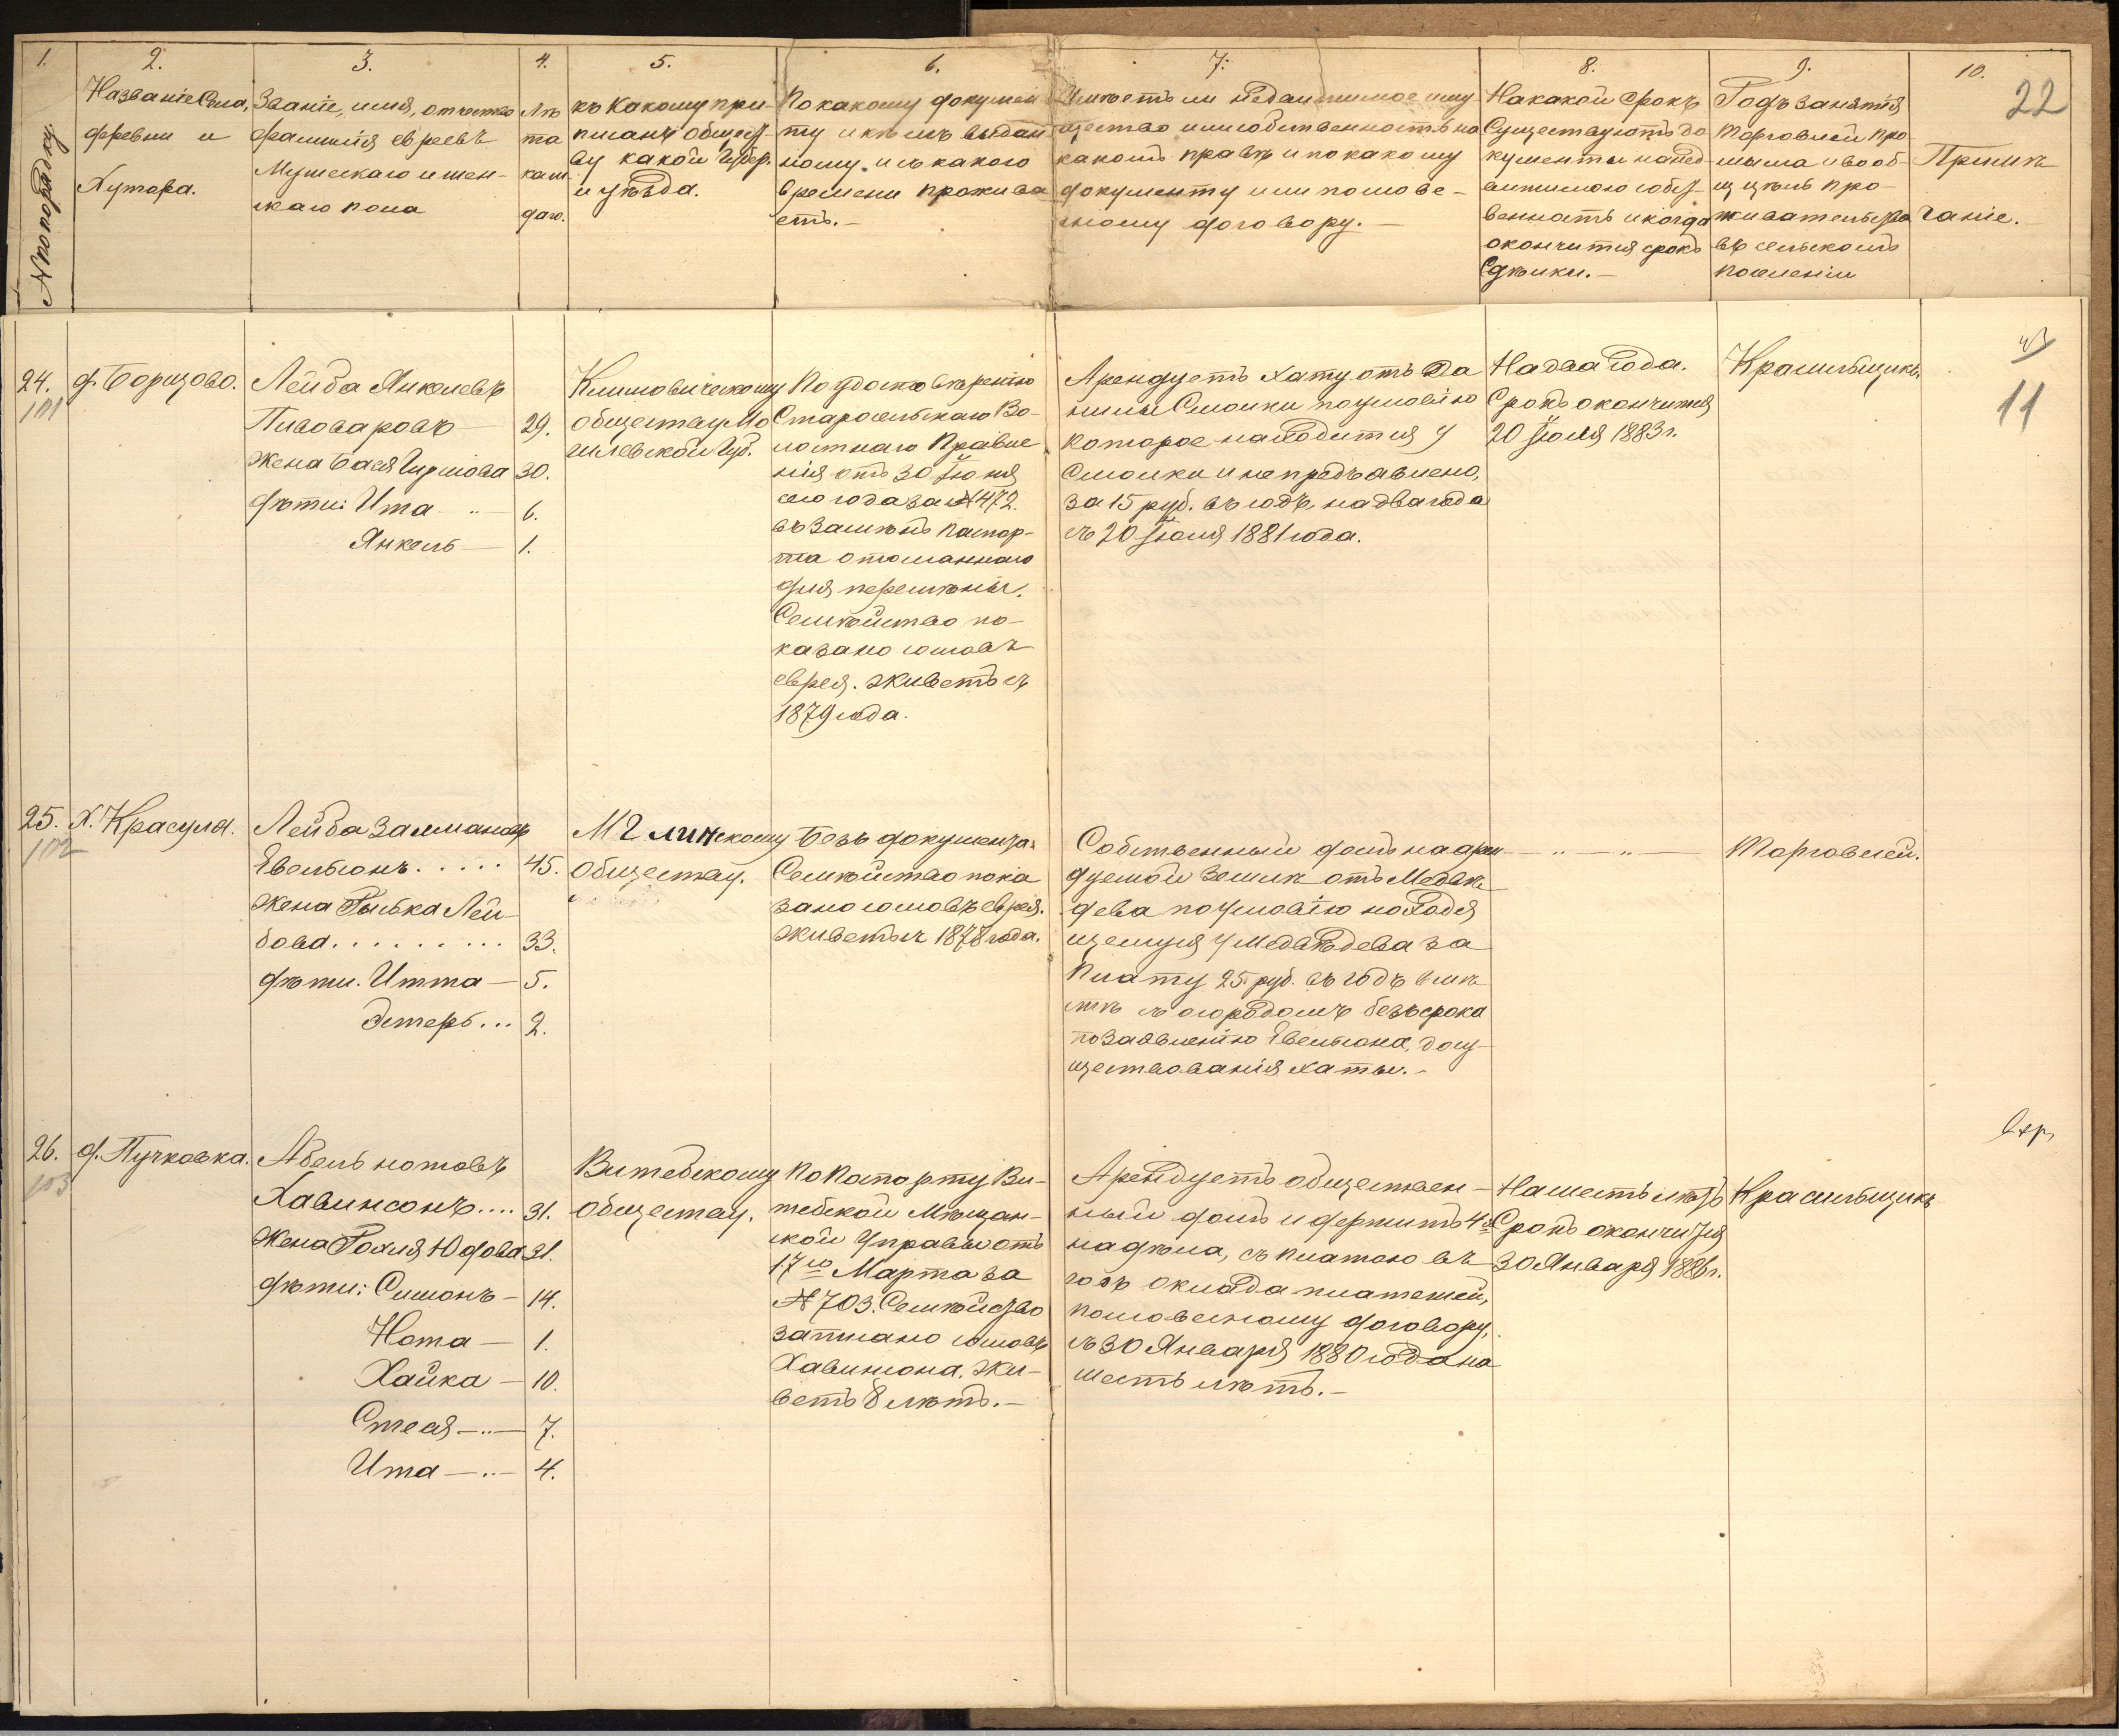 1.
2.
3.
4.
5.
6.
7.
8.
9.
10.
22
№ по порядку.
Названіе Села,
деревни и
Хутора.
Званіе, имя, отчество
фамилія евреевъ
Мужескаго и жен-
скаго пола
Лѣ
та
каж
даго.
къ Какому при-
писанъ общест-
ву какой Губер.
и уѣзда.
По какому докумен
ту и кѣмъ выдан
ному. и съ какого
времени прожива
етъ.-
Имѣетъ ли недвижимое иму
щество или собственность на
какомъ правѣ и по какому
документу или по слове-
сному договору.-
На какой срокъ
Существуютъ до
кументы на нед
вижимою собст-
венность и когда
окончится срокъ
Сдѣлки.-
Родъ занятія
торговлей про
мысла и вооб-
ще цѣль про-
живательства
въ сельскомъ
поселеніи
Примѣ
чаніе.-
24.
101
д. Борщово.
Лейба Янкелевъ
Пивоваровъ - 29.
Жена Бася Гиршова 30.
дѣти: Ита - 6.
Янкель - 1.
Климовическому
обществу Мо
гилевской Губ.
По удостовѣренію
Старосельскаго Во-
лостнаго Правле
нія отъ 30 Іюня
сего года за № 472.
въ замѣнъ паспор-
та отосланнаго
для перемѣны.
Семѣйство по-
казано сословъ
еврея. живетъ съ
1879 года.
Арендуетъ хату отъ Да
нилы Смолки по условію
которое находится у
Смолки и не предъявлено,
за 15 руб. въ годъ, на два года
съ 20 Іюля 1881 года.
На два года.
Срокъ окончится
20 Іюля 1883 г.
Красильщикъ.
11
25.
102
Х. Красуля.
Лейба Залмановъ
Евельсонъ..... 45.
Жена Рывка Лей-
бова......... 33.
дѣти. Итта - 5.
Эстеръ... 2.
Мглинскому
Обществу.
Безъ документа.
Семѣйство пока
зано сословъ еврея.
живетъ съ 1878 года.
Собственный домъ на арен
дуемой землѣ отъ Медвѣ
дева по условію находя
щемуся у Медвѣдева за
плату 25 руб. въ годъ вмѣ
стѣ съ огородомъ безъ срока
по заявленію Евельсона, до су-
ществованія хаты.-
- " - " -
Торговлей.
26.
103
д. Пучковка.
Абель нотовъ
Хавинсонъ.... 31.
Жена Рохля Юдова 31.
дѣти: Симонъ - 14.
Нота - 1.
Хайка - 10.
Стеся - " - 7.
Ита - " - 4.
Витебскому
Обществу.
По Паспорту Ви-
тебской Мѣщан-
ской Управы отъ
17го Марта за
№ 703. Семѣйство
записано сословъ
Хавинсона. жи-
ветъ 8 лѣтъ.-
Арендуетъ обществен-
ный домъ и держитъ 4
надѣла, съ платою въ
годъ оклада платежей,
по словесному договору,
съ 30 Января 1880 года на
шесть лѣтъ.-
На шесть лѣтъ
Срокъ окончится
30 Января 1886 г.
Красильщикъ